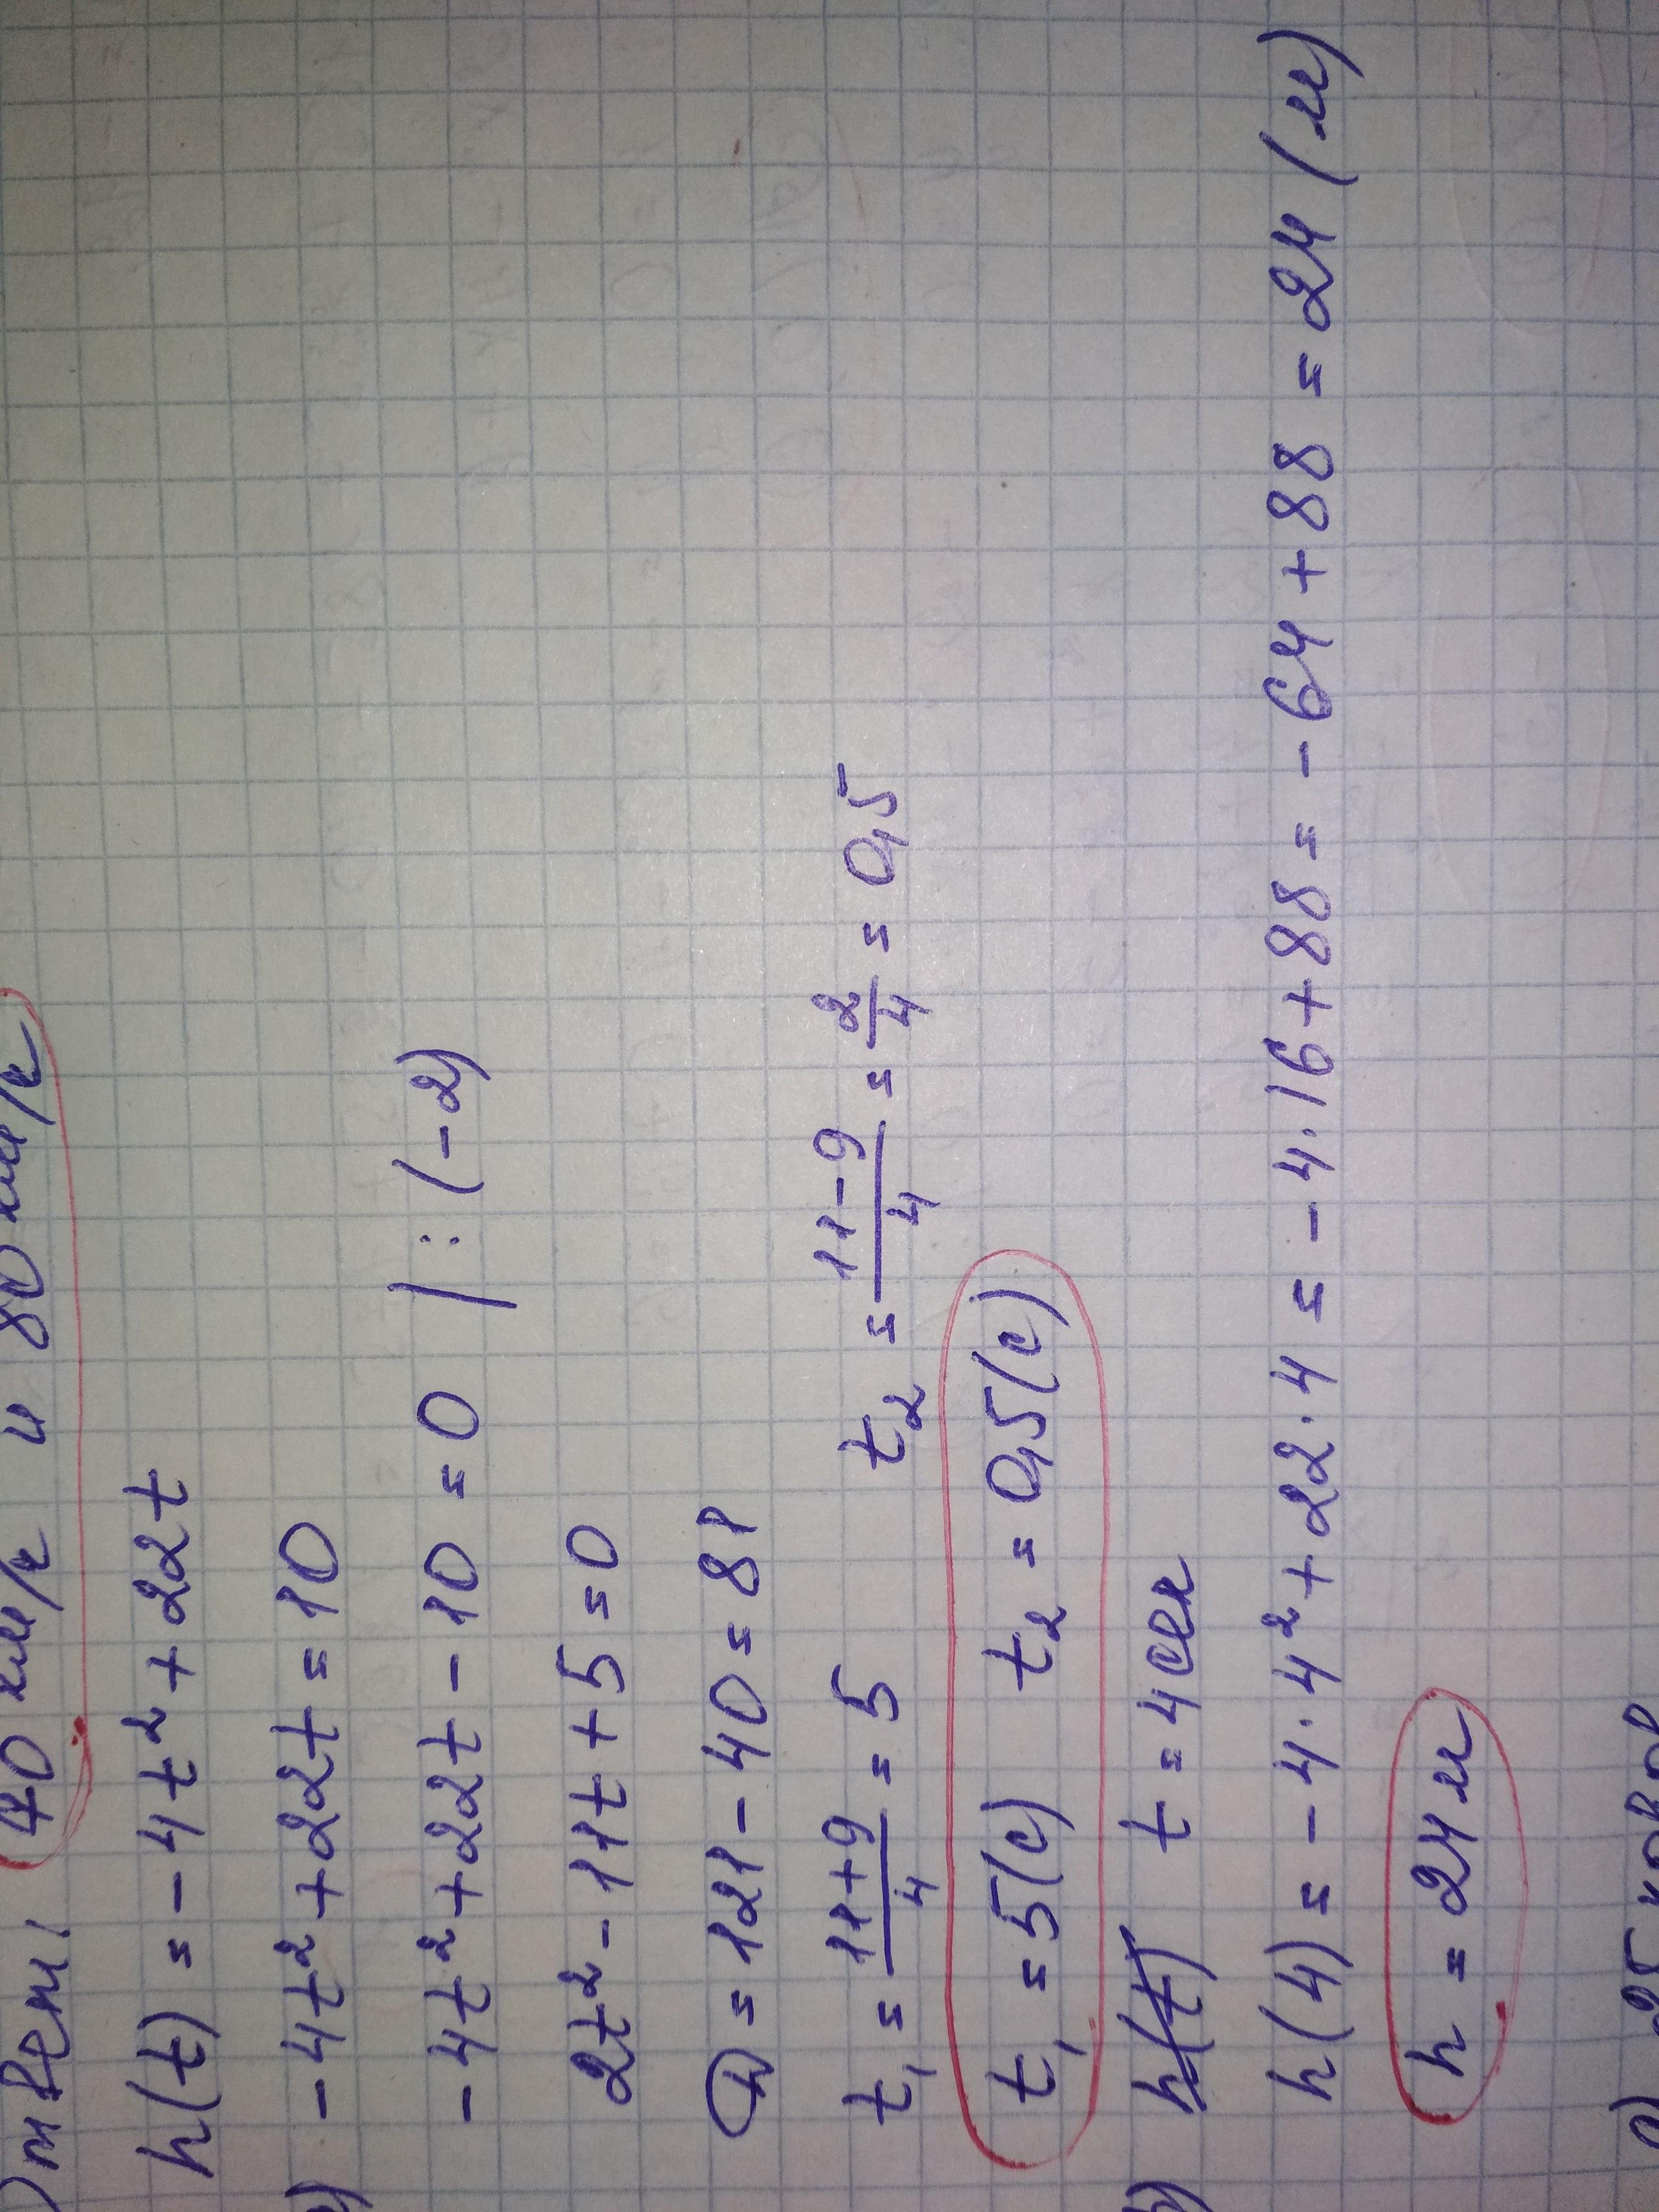 Ответ: 40 км/ч и 80 км/ч
h(t) = -4t² + 22t
а) -4t² + 22t = 10
-4t² + 22t - 10 = 0 | : (-2)
2t² - 11t + 5 = 0
D = 121 - 40 = 81
t₁ = 11+9/4 = 5 t₂ = 11-9/4 = 2/4 = 0,5
t₁ = 5(с) t₂ = 0,5(с)
б) h(t) t = 4 сек
h(4) = -4·4² + 22·4 = -4·16 + 88 = -64 + 88 = 24 (м)
h = 24 м